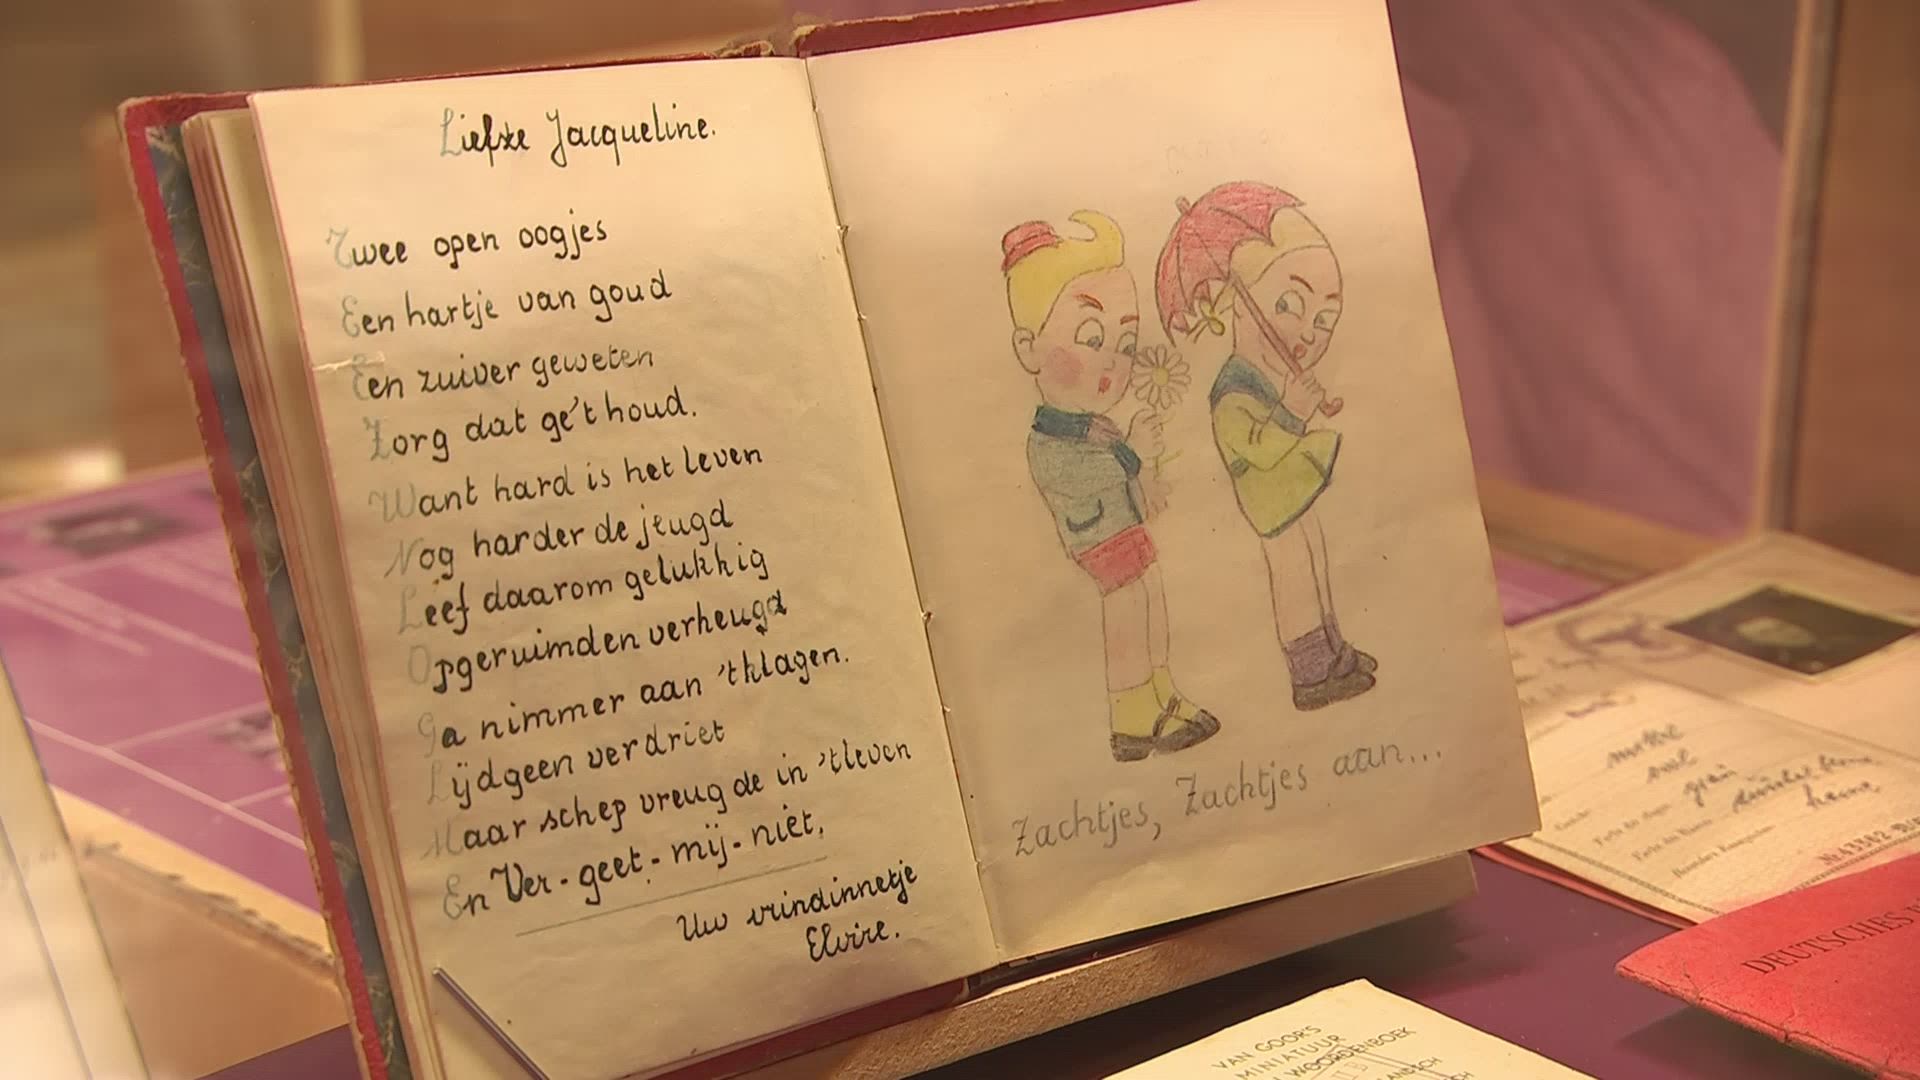 Liefste Jacqueline.
Twee open oogjes
Een hartje van goud
Een zuiver geweten
Zorg dat ge't houd.
Want hard is het leven
Nog harder de jeugd
Leef daarom gelukkig
Opgeruimd en verheugd
Ga nimmer aan 't klagen.
Lijd geen verdriet
Maar schep vreugde in 't leven
En Ver-geet-mij-niet.
Uw vrindinnetje
Elvire.
Zachtjes, Zachtjes aan...
DEUTSCHES
VAN GOOR'S
MINIATUUR
WOORDENBOEK